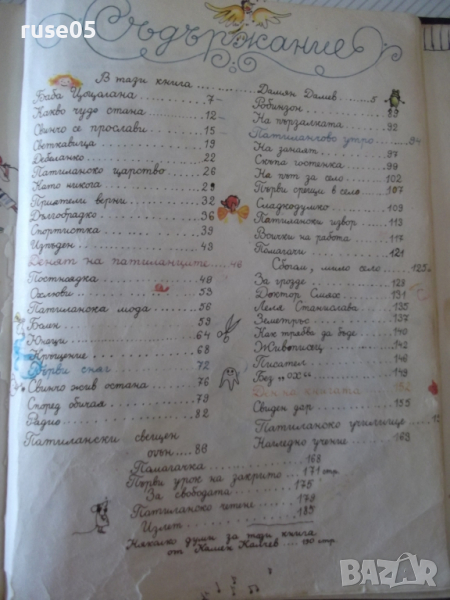 ruse05
Съдържание
В тази книга
Баба Цоцолана ... 7
Какво чудо стана ... 12
Свинчо се прослави ... 15
Светкавица ... 19
Дебеланко ... 22
Патиланско царство ... 26
Като никога ... 29
Приятели верни ... 32
Дългобрадко ... 36
Спортистка ... 39
Изпъден ... 43
Денят на патиланците ... 48
Постноядка ... 48
Оглюви ... 53
Патиланска мода ... 56
Бомм ... 59
Юнаци ... 64
Кръщение ... 68
Първи сняг ... 72
Свинчо жив остана ... 76
Според обичая ... 79
Радио ... 82
Патилански свещен
огън ... 86
Дамян Дамев ... 5
Робинзон ... 89
На пързалката ... 92
Патиланково утро ... 94
На занаят ... 97
Скъпа гостенка ... 99
На път за село ... 102
Първи срещи в село ... 107
Сладкодумко ... 109
Патилански извор ... 113
Всички на работа ... 117
Помагачи ... 121
Сбогом, мило село ... 125
За грозде ... 129
Доктор Смях ... 131
Леля Станислава ... 135
Земетръс ... 137
Как трябва да бъде ... 140
Живописец ... 142
Писател ... 146
Без "ох" ... 149
Ден на книгата ... 152
Свиден дар ... 155
Патиланско училище
Нагледно учение ... 163
Помагачка ... 168
Първи урок на закрито ... 171 стр.
За свободата ... 175
Патиланско четене ... 179
Излет ... 185
Няколко думи за тази книга
от Камен Калчев ... 190 стр.
BAZAR.bg